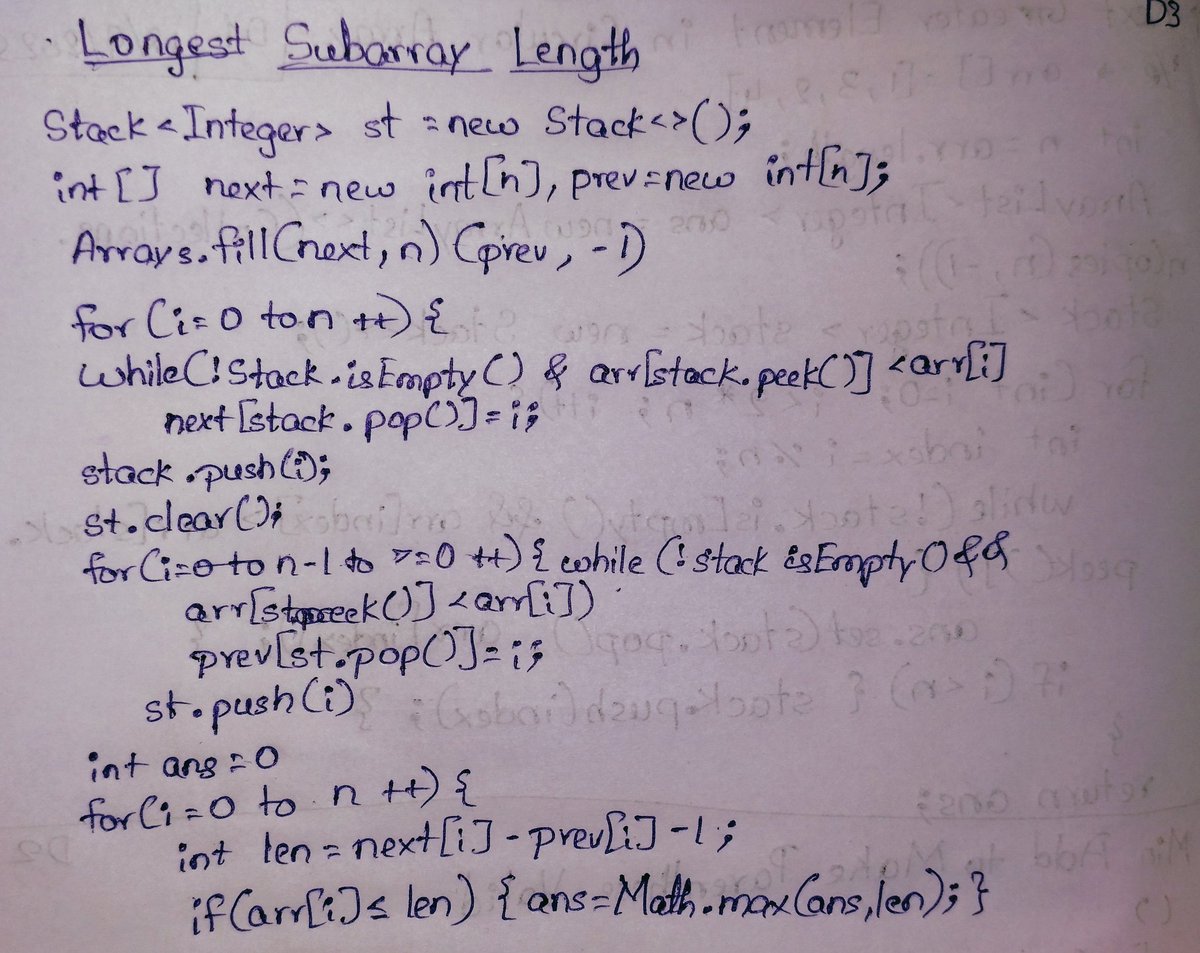 D3
Longest Subarray Length
Stack<Integer> st = new Stack<>();
int [] next = new int[n], prev=new int[n];
Arrays.fill(next, n) (prev, -1)
for (i=0 to n ++) {
while(!Stack.isEmpty() & arr[stack.peek()] <arr[i]
next[stack.pop()]=i;
stack.push(i);
st.clear();
for(i=0 to n-1 to >=0 ++) { while (!stack isEmpty() &&
arr[st.peek()] <arr[i])
prev[st.pop()]=i;
st.push(i)
int ans=0
for(i=0 to n ++) {
int len = next[i] - prev[i] -1;
if(arr[i]≤ len) { ans=Math.max(ans,len); }